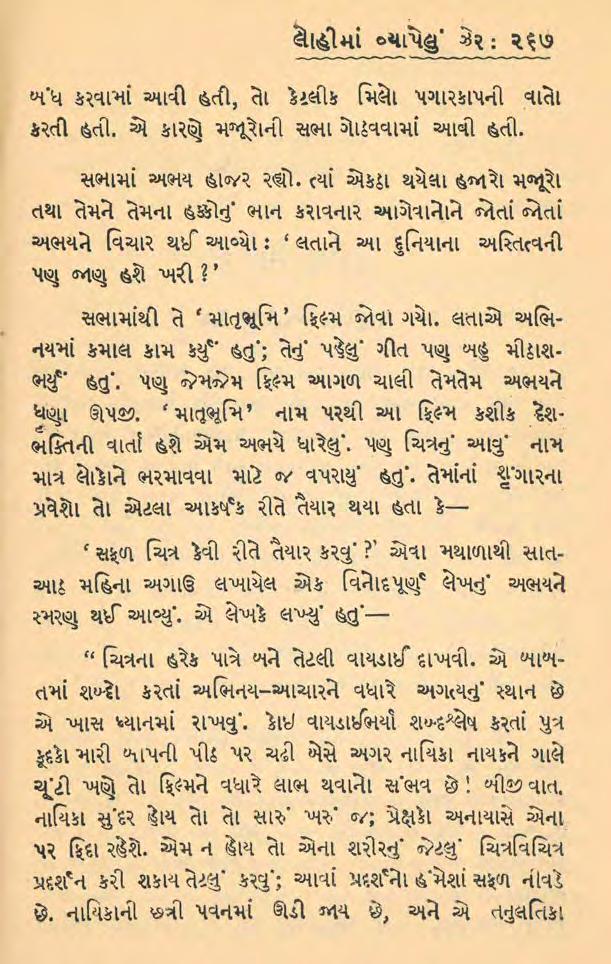 લોહીમાં વ્યાપેલું ઝેર : ૨૬૭
બંધ કરવામાં આવી હતી, તો કેટલીક મિલો પગારકાપની વાતો
કરતી હતી. એ કારણે મજૂરોની સભા ગોઠવવામાં આવી હતી.
સભામાં અભય હાજર રહ્યો. ત્યાં એકઠા થયેલા હજારો મજૂરો
તથા તેમને તેમના હક્કોનું ભાન કરાવનાર આગેવાનોને જોતાં જોતાં
અભયને વિચાર થઈ આવ્યો : ‘ લતાને આ દુનિયાના અસ્તિત્વની
પણ જાણ હશે ખરી ?’
સભામાંથી તે ‘ માતૃભૂમિ’ ફિલ્મ જોવા ગયો. લતાએ અભિ-
નયમાં કમાલ કામ કર્યું હતું; તેનું પહેલું ગીત પણ બહુ મીઠાશ-
ભર્યું હતું. પણ જેમજેમ ફિલ્મ આગળ ચાલી તેમતેમ અભયને
ઘૃણા ઊપજી. ‘ માતૃભૂમિ’ નામ પરથી આ ફિલ્મ કશીક દેશ-
ભક્તિની વાર્તા હશે એમ અભયે ધારેલું. પણ ચિત્રનું આવું નામ
માત્ર લોકોને ભરમાવવા માટે જ વપરાયું હતું. તેમાંનાં શૃંગારના
પ્રવેશો તો એટલા આકર્ષક રીતે તૈયાર થયા હતા કે—
‘ સફળ ચિત્ર કેવી રીતે તૈયાર કરવું ?’ એવા મથાળાથી સાત-
આઠ મહિના અગાઉ લખાયેલ એક વિનોદપૂર્ણ લેખનું અભયને
સ્મરણ થઈ આવ્યું. એ લેખકે લખ્યું હતું—
“ ચિત્રના હરેક પાત્રે બને તેટલી વાયડાઈ દાખવી. એ બાબ-
તમાં શબ્દો કરતાં અભિનય–આચારને વધારે અગત્યનું સ્થાન છે
એ ખાસ ધ્યાનમાં રાખવું. કોઇ વાયડાઈભર્યા શબ્દશ્લેષ કરતાં પુત્ર
કૂદકો મારી બાપની પીઠ પર ચઢી બેસે અગર નાયિકા નાયકને ગાલે
ચૂંટી ખણે તો ફિલ્મને વધારે લાભ થવાનો સંભવ છે! બીજી વાત.
નાયિકા સુંદર હોય તો તો સારું ખરું જ; પ્રેક્ષકો અનાયાસે એના
પર ફિદા રહેશે. એમ ન હોય તો એના શરીરનું જેટલું ચિત્રવિચિત્ર
પ્રદર્શન કરી શકાય તેટલું કરવું; આવાં પ્રદર્શનો હંમેશાં સફળ નીવડે
છે. નાયિકાની છત્રી પવનમાં ઊડી જાય છે, અને એ તનુલતિકા